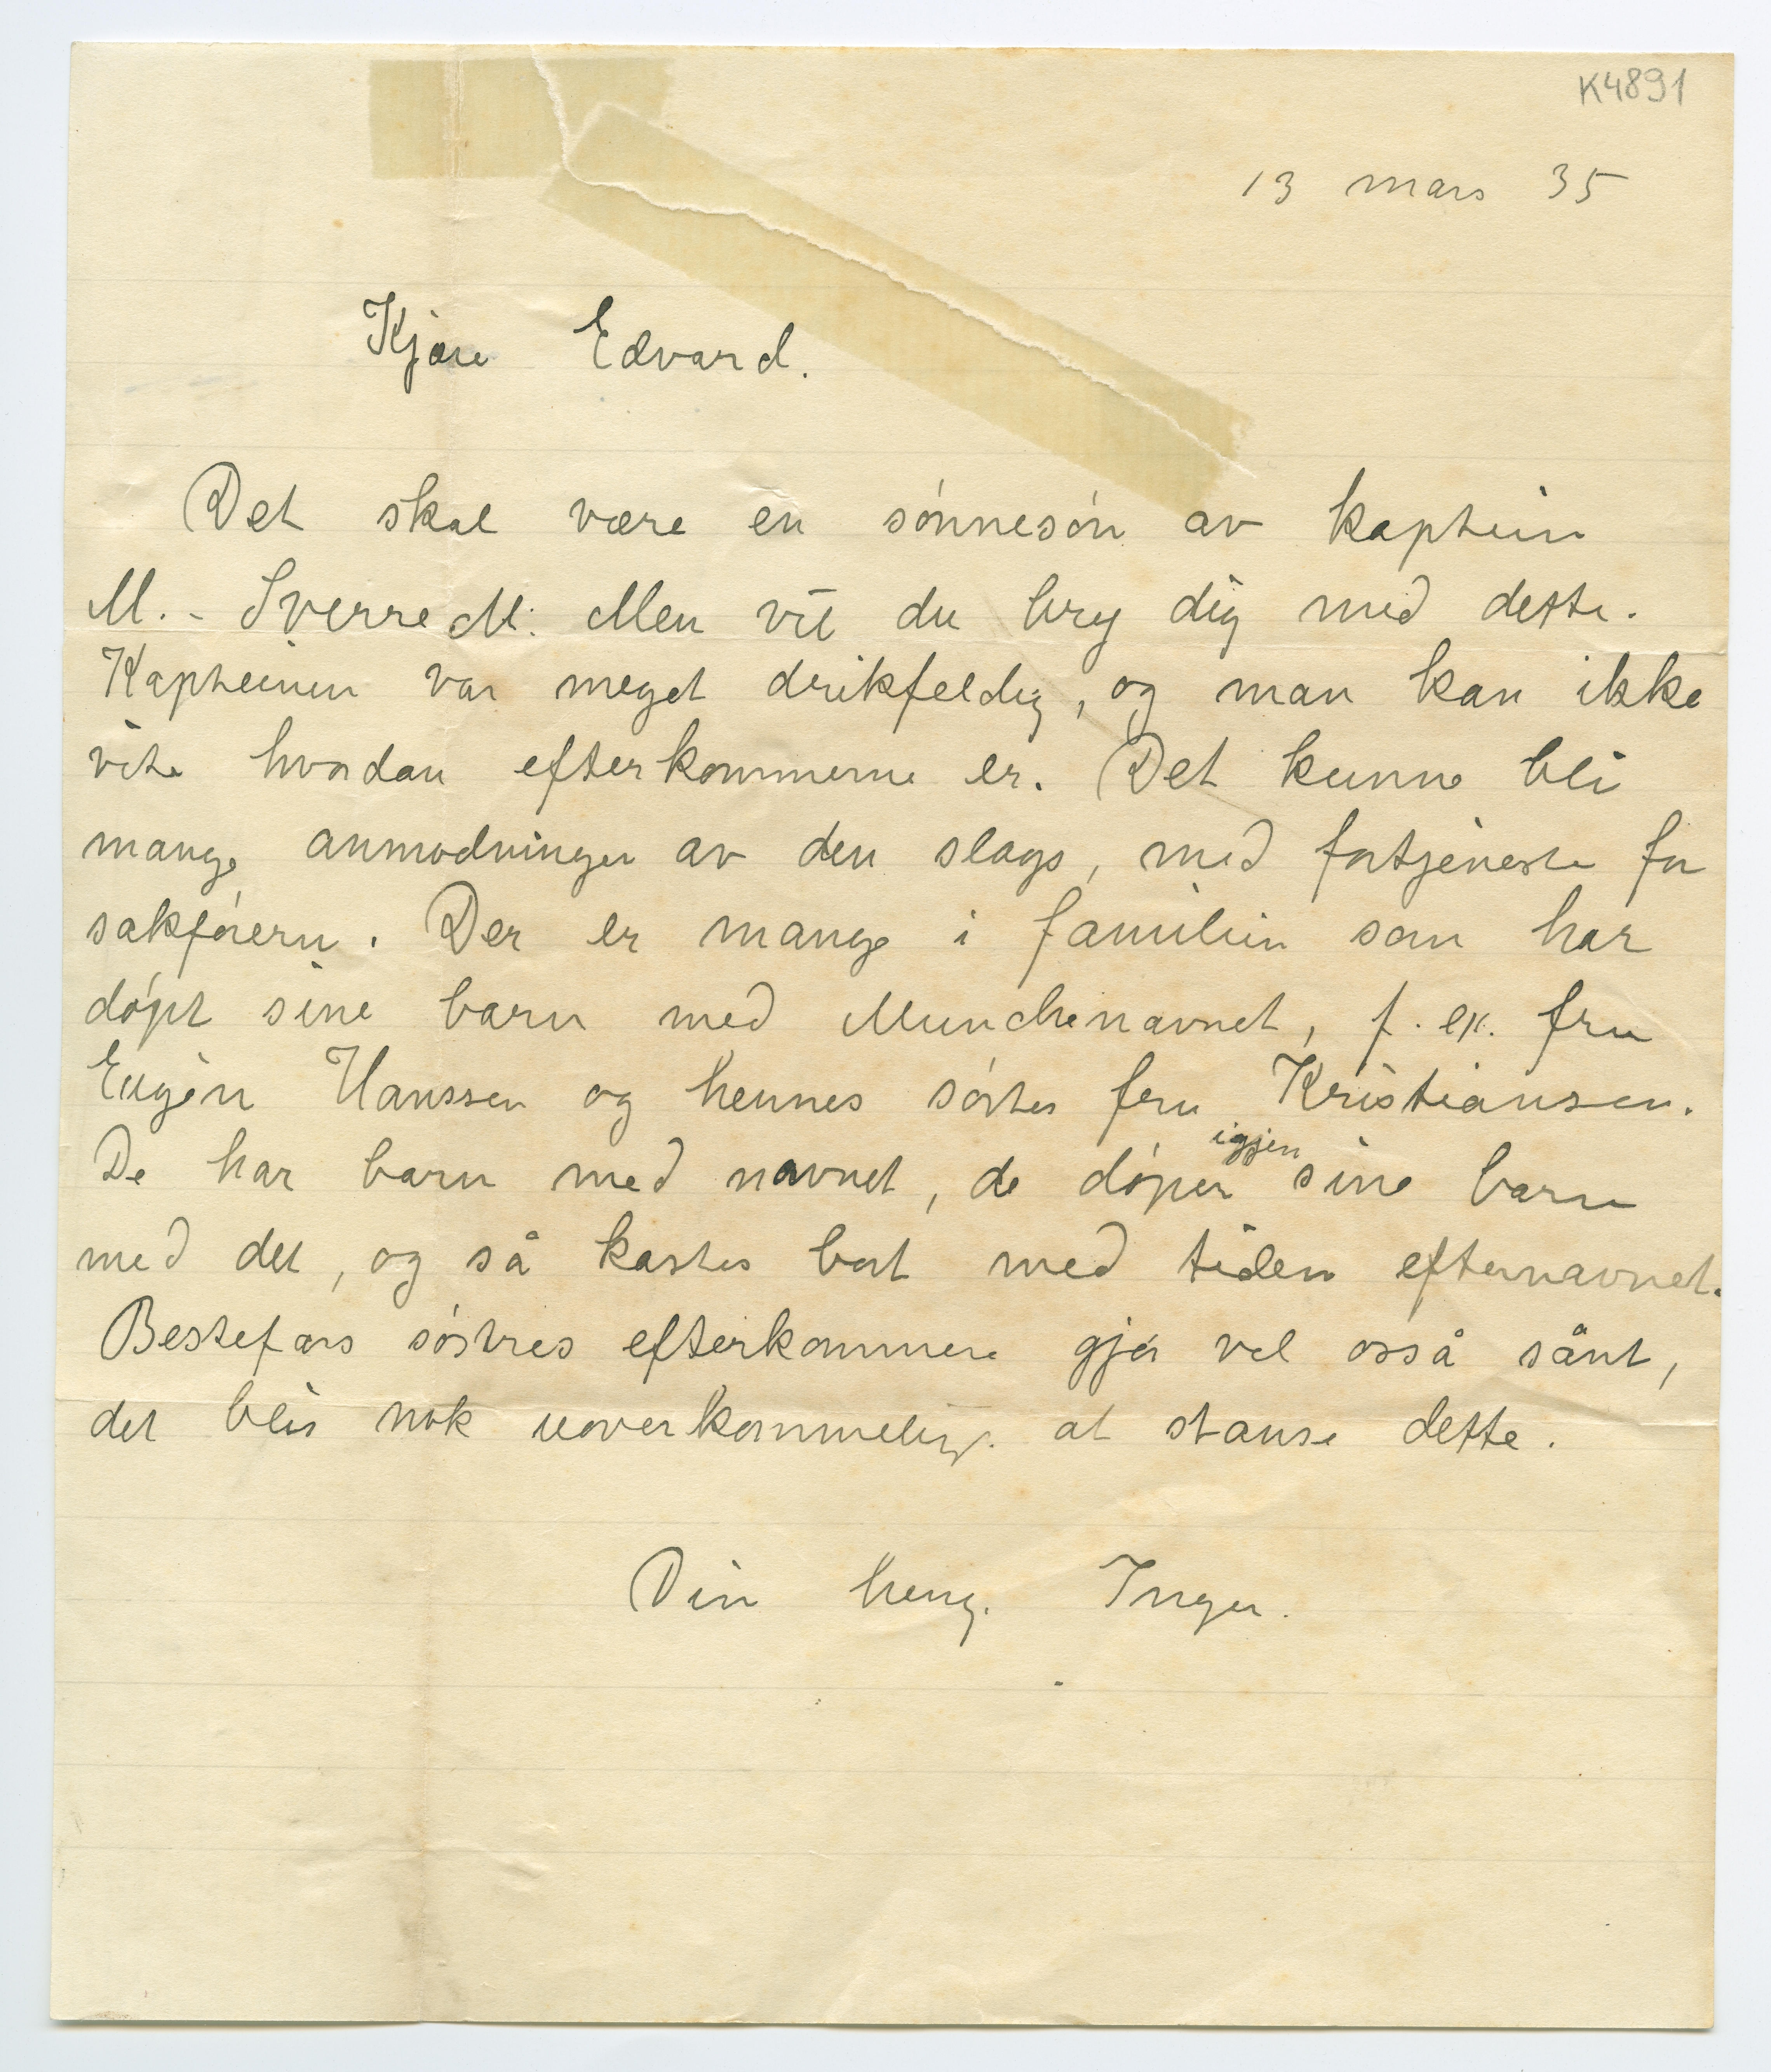 K4891
13 mars 35
Kjære Edvard.
Det skal være en sónnesón av kaptein
M. - Sverre M. Men vil du bry dig med dette.
Kapteinen var meget drikfeldig, og man kan ikke
vite hvordan efterkommerne er. Det kunne bli
mange anmodninger av den slags, med fortjeneste for
sakfórern. Der er mange i familien som har
dópt sine barn med Munchenavnet, f. ex. fru
Eugén Hanssen og hennes sóster fru Kristiansen.
De har barn med navnet, de dóper igjen sine barn
med det, og så kastes bort med tiden efternavnet.
Bestefars sóstres efterkommere gjór vel osså sånt,
det blir nok uoverkommelig at stanse dette.
Din heng. Inger.